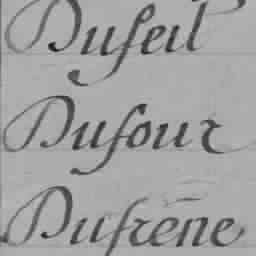 Duseil
Dufour
Dufrêne